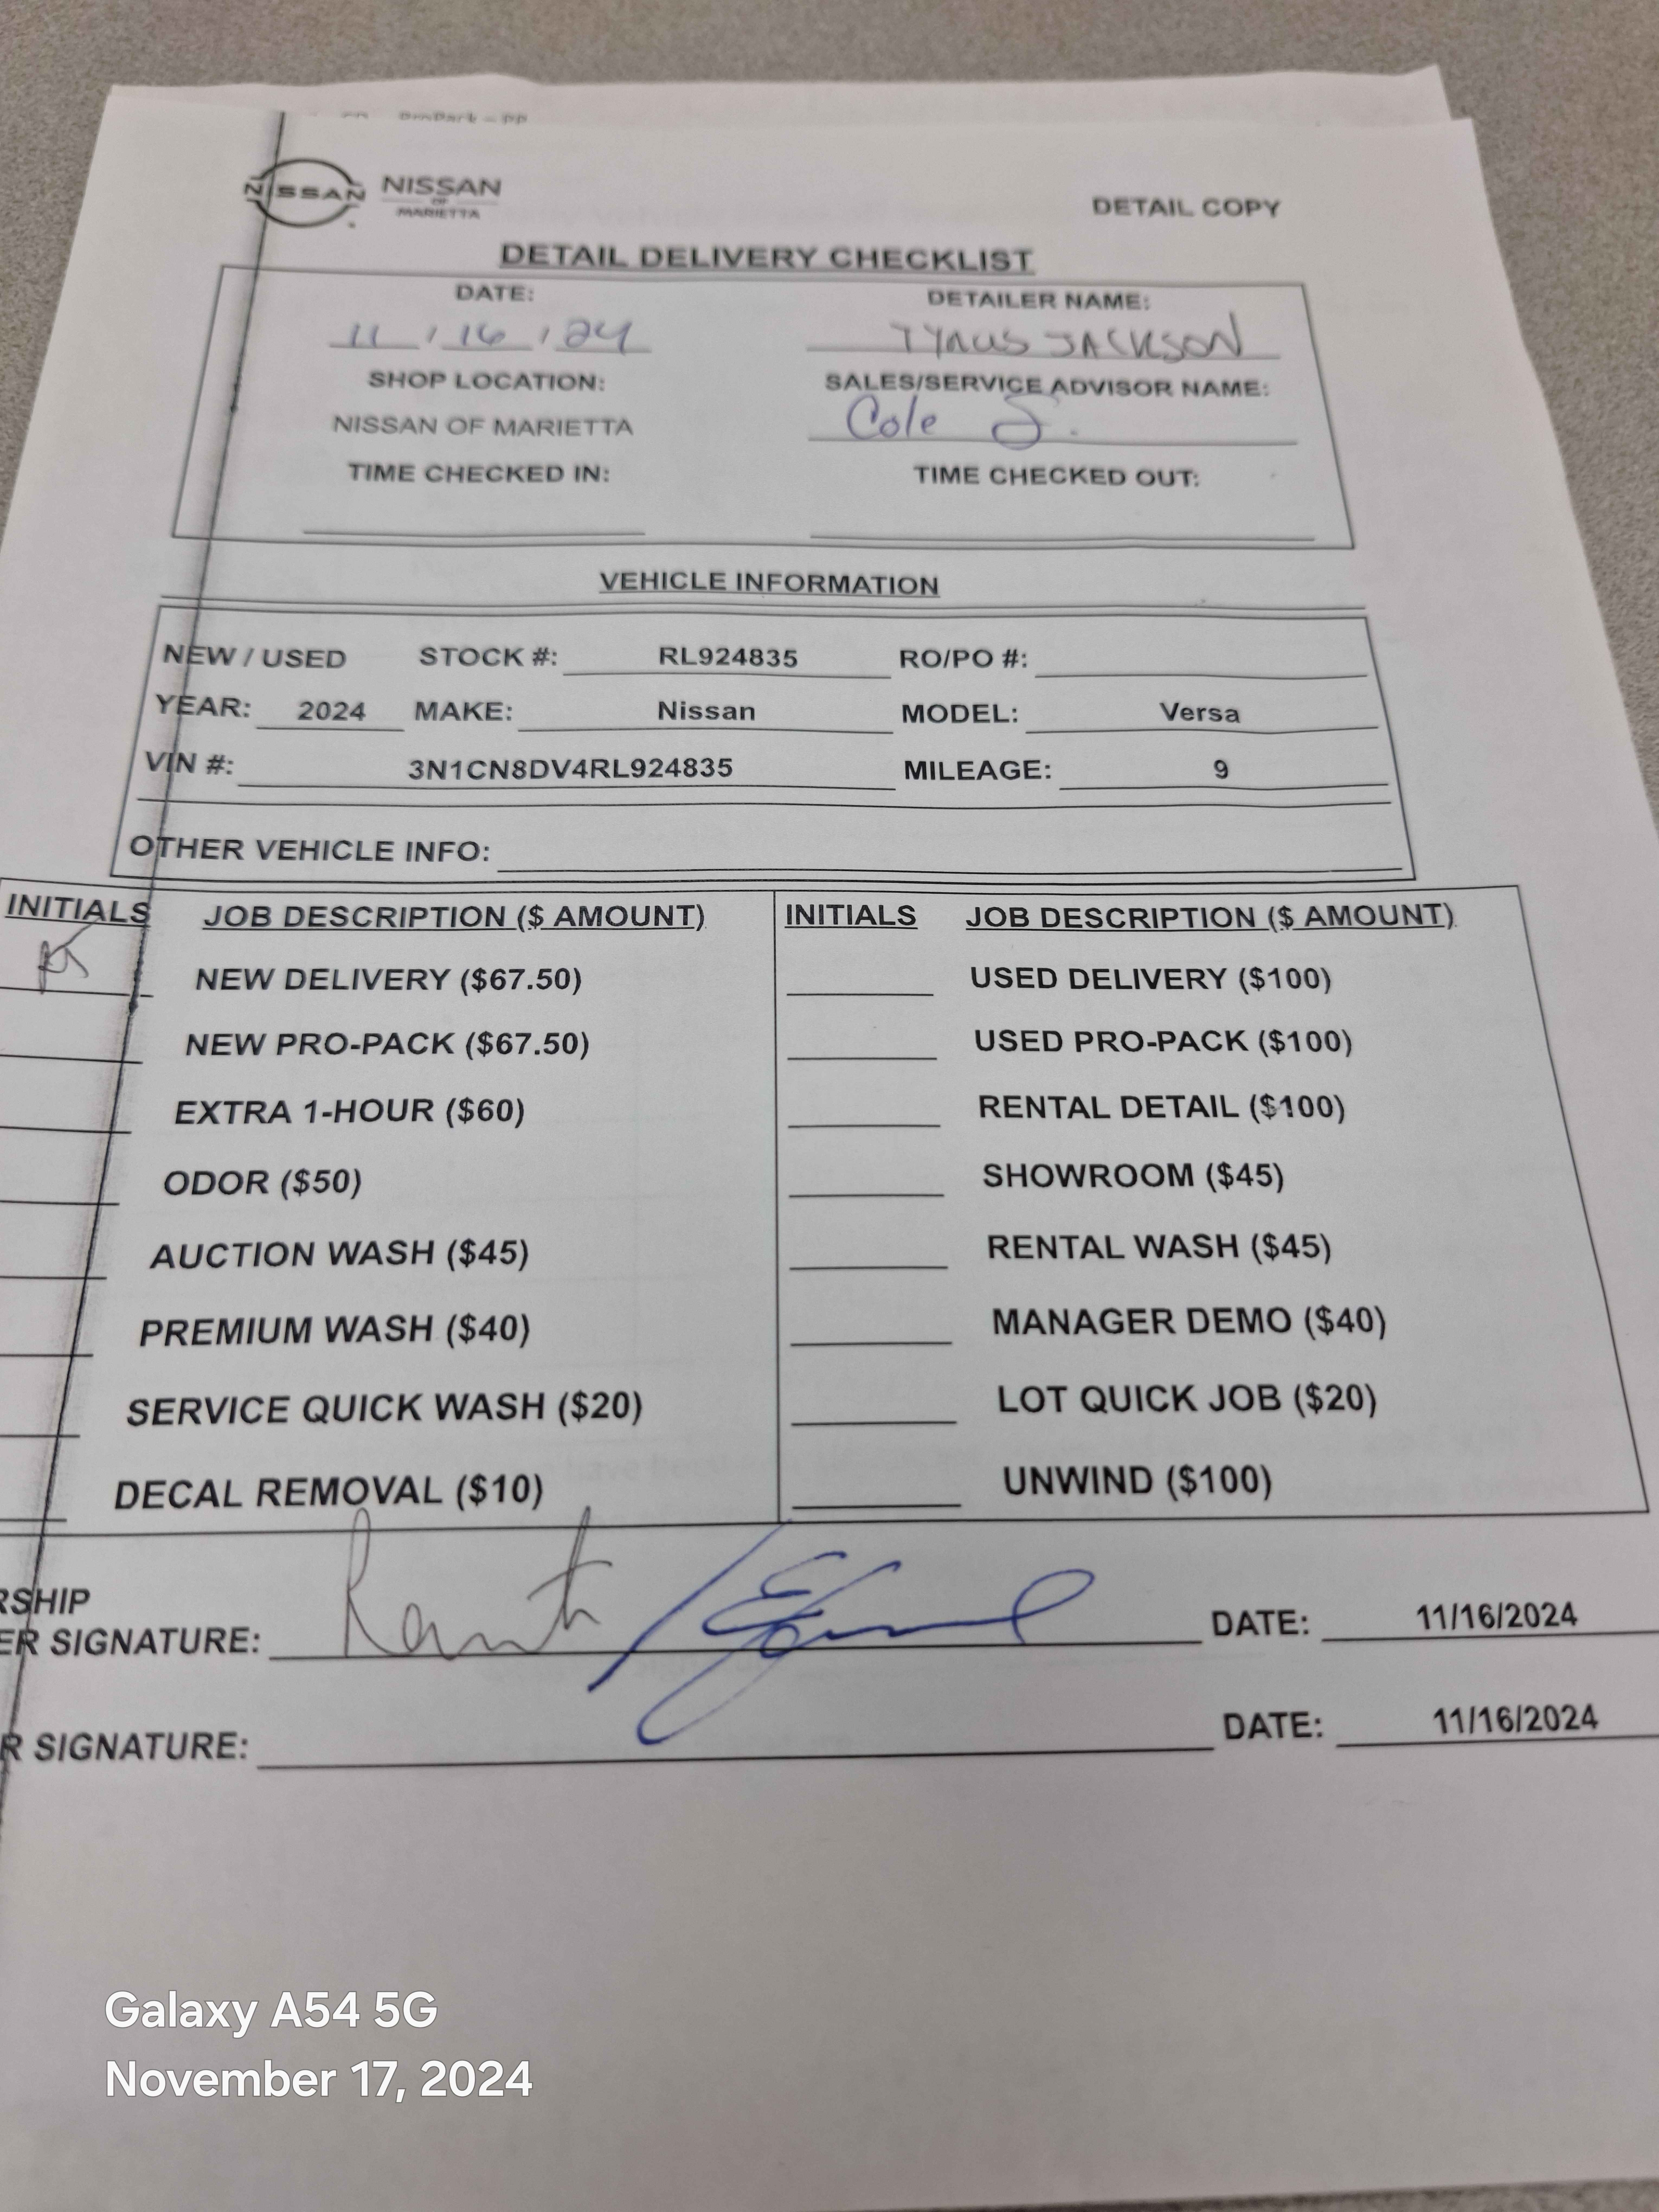 NISSAN
NISSAN
OF
MARIETTA
DETAIL COPY
DETAIL DELIVERY CHECKLIST
DATE: DETAILER NAME:
11 / 16 / 24 TYRUS JACKSON
SHOP LOCATION: SALES/SERVICE ADVISOR NAME:
NISSAN OF MARIETTA Cole J.
TIME CHECKED IN: TIME CHECKED OUT:
VEHICLE INFORMATION
NEW / USED STOCK #: RL924835 RO/PO #:
YEAR: 2024 MAKE: Nissan MODEL: Versa
VIN #: 3N1CN8DV4RL924835 MILEAGE: 9
OTHER VEHICLE INFO:
INITIALS JOB DESCRIPTION ($ AMOUNT) INITIALS JOB DESCRIPTION ($ AMOUNT)
NEW DELIVERY ($67.50) USED DELIVERY ($100)
NEW PRO-PACK ($67.50) USED PRO-PACK ($100)
EXTRA 1-HOUR ($60) RENTAL DETAIL ($100)
ODOR ($50) SHOWROOM ($45)
AUCTION WASH ($45) RENTAL WASH ($45)
PREMIUM WASH ($40) MANAGER DEMO ($40)
SERVICE QUICK WASH ($20) LOT QUICK JOB ($20)
DECAL REMOVAL ($10) UNWIND ($100)
RSHIP
ER SIGNATURE: DATE: 11/16/2024
R SIGNATURE: DATE: 11/16/2024
Galaxy A54 5G
November 17, 2024